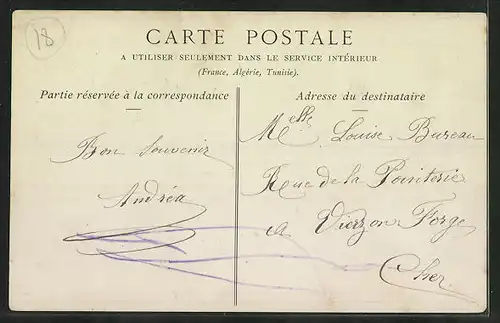 18
CARTE POSTALE
A UTILISER SEULEMENT DANS LE SERVICE INTÉRIEUR
(France, Algérie, Tunisie).
Partie réservée à la correspondance
Bon Souvenir
Andréa
Adresse du destinataire
Melle Louise Bureau
Rue de la Poniterie
a Vierzon Forge
Cher